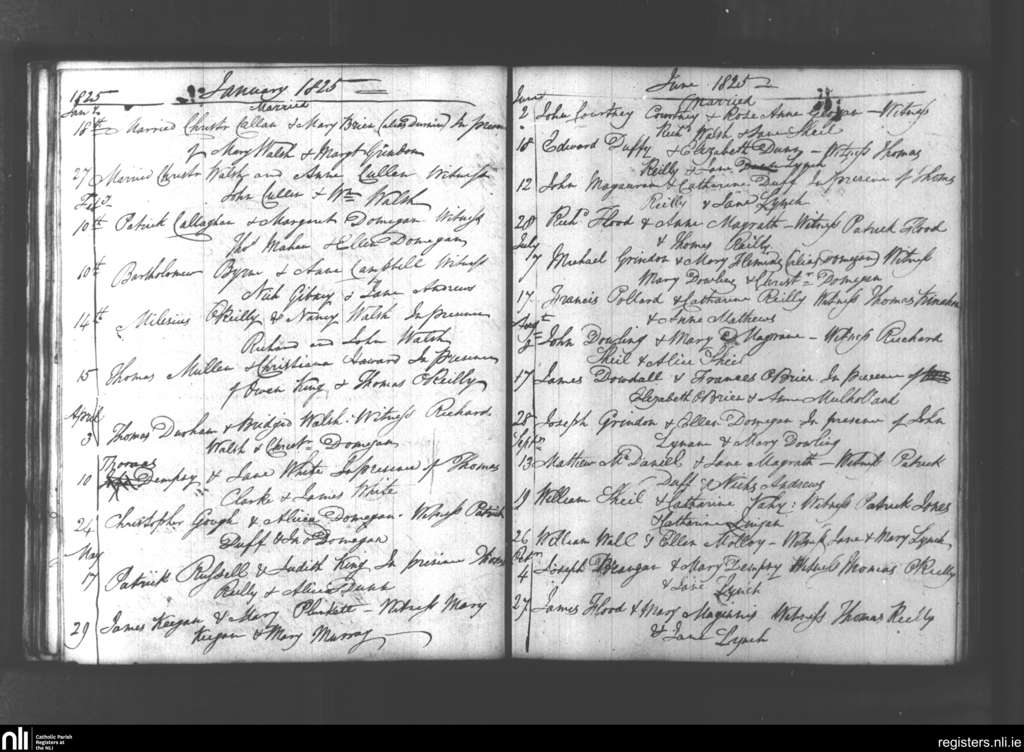 1825 January 1825
Married
Jany
18th Married Christr Callan & Mary Brien (alias Durnin) In presence
of Mary Walsh & Margt Grindon
27 Married Christr Walsh and Anne Cullan Witness
John Cullen & Wm Walsh
Feby
10th Patrick Callaghan & Margaret Donegan Witness
Thos Mahon & Ellen Donegan
10th Bartholomew Byrne & Anne Campbell Witness
Nich Gibney & Jane Andrews
14th Milesius O'Reilly & Nancy Walsh In presence
Richard and John Walsh
15 Thomas Mullen & Christiana Howard In presence
of Owen King & Thomas O'Reilly
April
3 Thomas Durham & Bridget Walsh. Witness Richard
Walsh & Christr Donegan
Thomas
10 Dempsy & Jane White In presence of Thomas
Clarke & James White
24 Christopher Gough & Alicia Donegan. Witness Patrick
Duff & Jno Donegan
May
17 Patrick Russell & Judith King In presence Thomas
Reilly & Alicia Dunn
29 James Keegan & Mary Plunkett – Witness Mary
Keegan & Mary Murray
June 1825
Married
June
2 John Courtney Courtney & Rose Anne – Witness
Richd Walsh & Jane Sheil
18 Edward Duffy & Elizabeth – Witness Thomas
Reilly & Jane Lynch
12 John Magauran & Catherine Duff In presence of Thomas
Reilly & Jane Lynch
28 Richd Flood & Anne Magrath – Witness Patrick Flood
& Thomas Reilly
July
7 Michael Grindon & Mary Fleming (alias Donegan) Witness
Mary Dowling & Christr Donegan
17 Francis Pollard & Catharine Reilly Witness Thomas
& Anne Mathews
Augt
2 John Dowling & Mary Magrane – Witness Richard
Sheil & Alice Sheil
17 James Dowdall & Frances O'Brien In presence of
Elizabeth O'Brien & Anne Mulholland
28 Joseph Grindon & Ellen Donegan In presence of John
& Mary Dowling
Septr
13 Mathew McDaniel & Jane Magrath – Witness Patrick
Duff & Nichs Andrews
19 William Sheil & Catharine Fahy: Witness Patrick Jones
Katherine
26 William Wall & Ellen Molloy – Witness Jane & Mary Lynch
4 Joseph Mangan & Mary Dempsy Witness Thomas O'Reilly
& Jane Lynch
27 James Flood & Mary Maginnis Witness Thomas Reilly
& Jane Lynch
nli Catholic Parish
Registers at
the NLI
registers.nli.ie